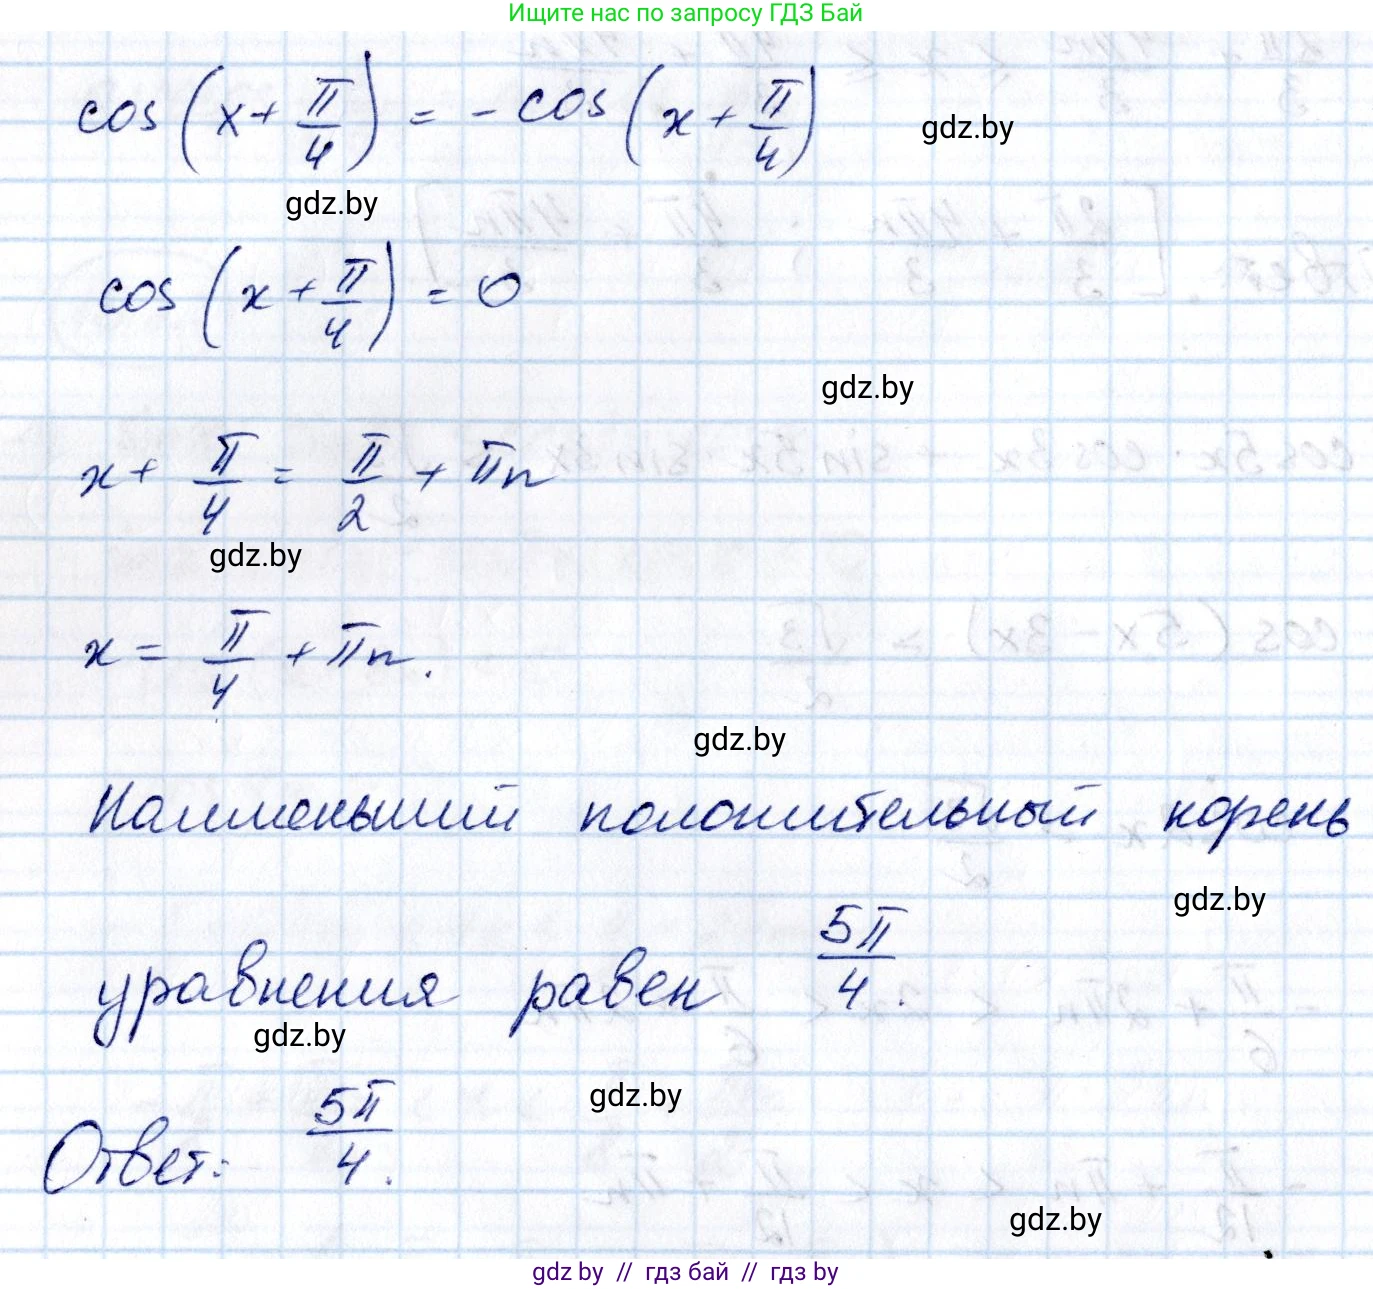 Ищите нас по запросу ГДЗ Бай
cos(x + π/4) = - cos(x + π/4)
gdz.by
gdz.by
cos(x + π/4) = 0
gdz.by
x + π/4 = π/2 + πn
gdz.by
x = π/4 + πn.
gdz.by
Наименьший положительный корень
gdz.by
уравнения равен 5π/4.
gdz.by
gdz.by
Ответ: 5π/4.
gdz.by
gdz by // гдз бай // гдз by